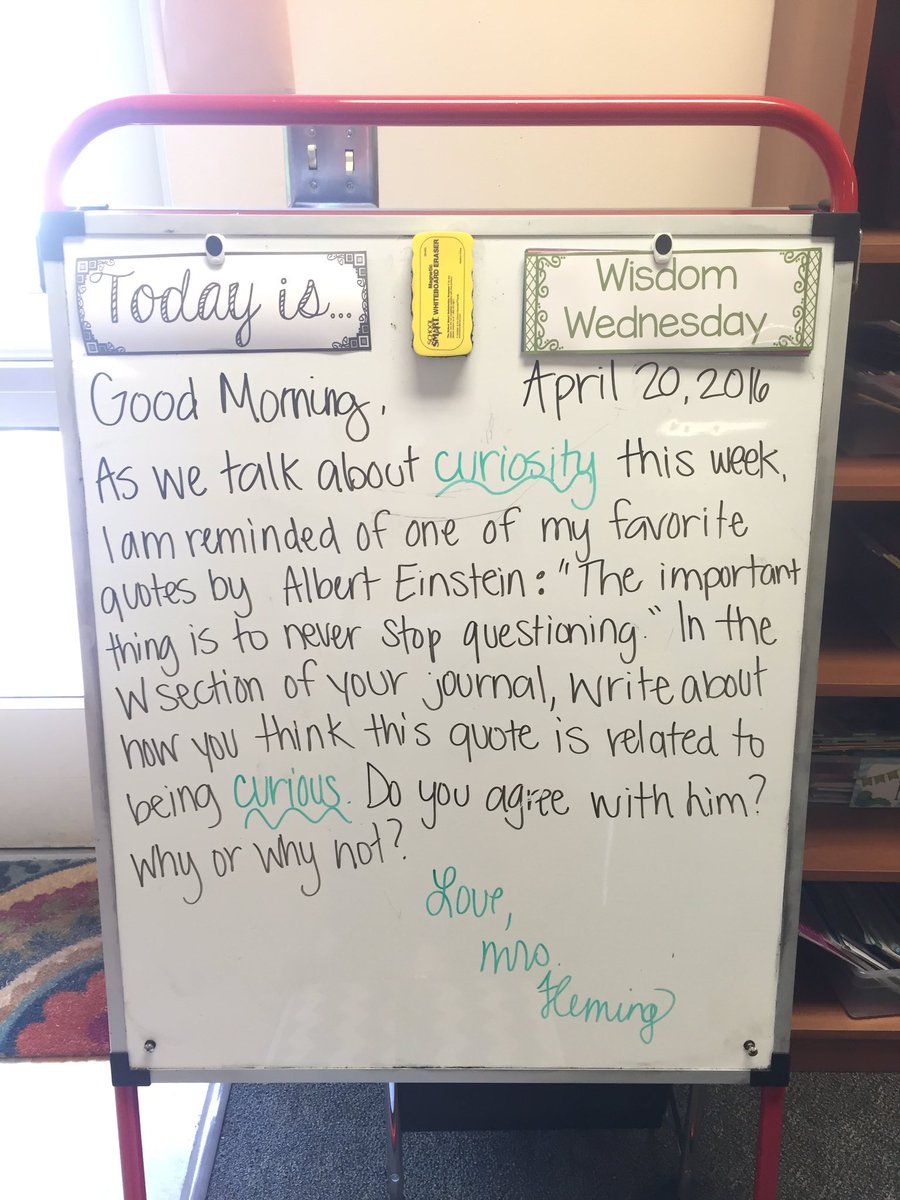 Today is...
Wisdom
Wednesday
Magnetic
SCHOOL SMART WHITEBOARD ERASER
Good Morning,
April 20, 2016
As we talk about curiosity this week,
I am reminded of one of my favorite
quotes by Albert Einstein: "The important
thing is to never stop questioning." In the
W section of your journal, write about
how you think this quote is related to
being curious. Do you agree with him?
Why or why not?
Love,
Mrs.
Fleming